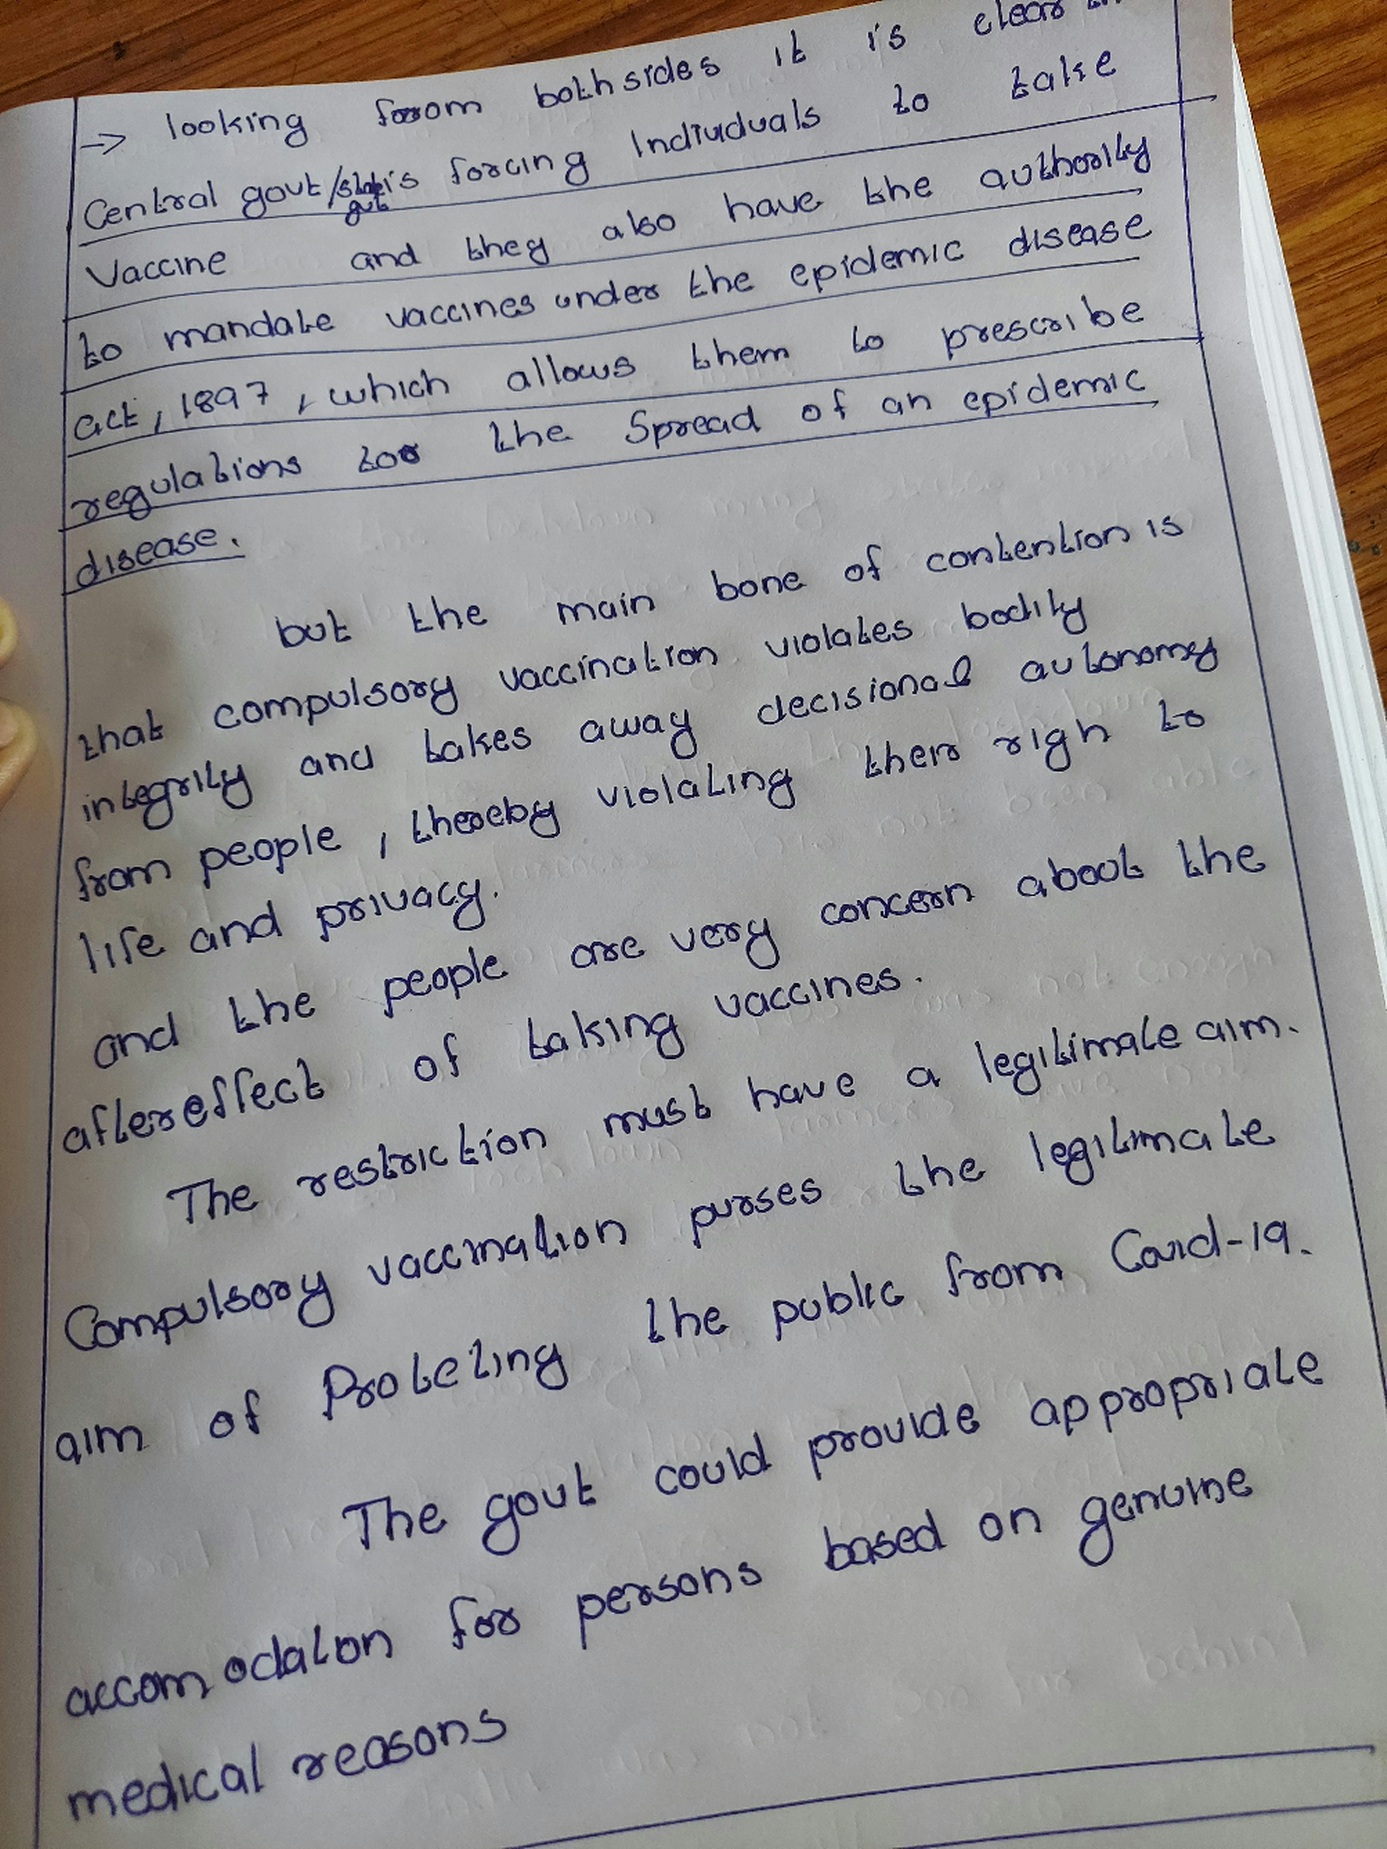 → looking from both sides it is clear
Central govt/state govt is forcing Individuals to take
Vaccine and they also have the authority
to mandate vaccines under the epidemic disease
act, 1897, which allows them to prescribe
regulations for the Spread of an epidemic
disease.
but the main bone of contention is
that compulsory vaccination violates bodily
integrity and takes away decisional autonomy
from people, thereby violating their righ to
life and privacy.
and the people are very concern about the
aftereffect of taking vaccines.
The restriction must have a legitimate aim.
Compulsory vaccination purses the legitimate
aim of Proteting the public from Covid-19.
The govt could provide appropriate
accomodation for persons based on genuine
medical reasons